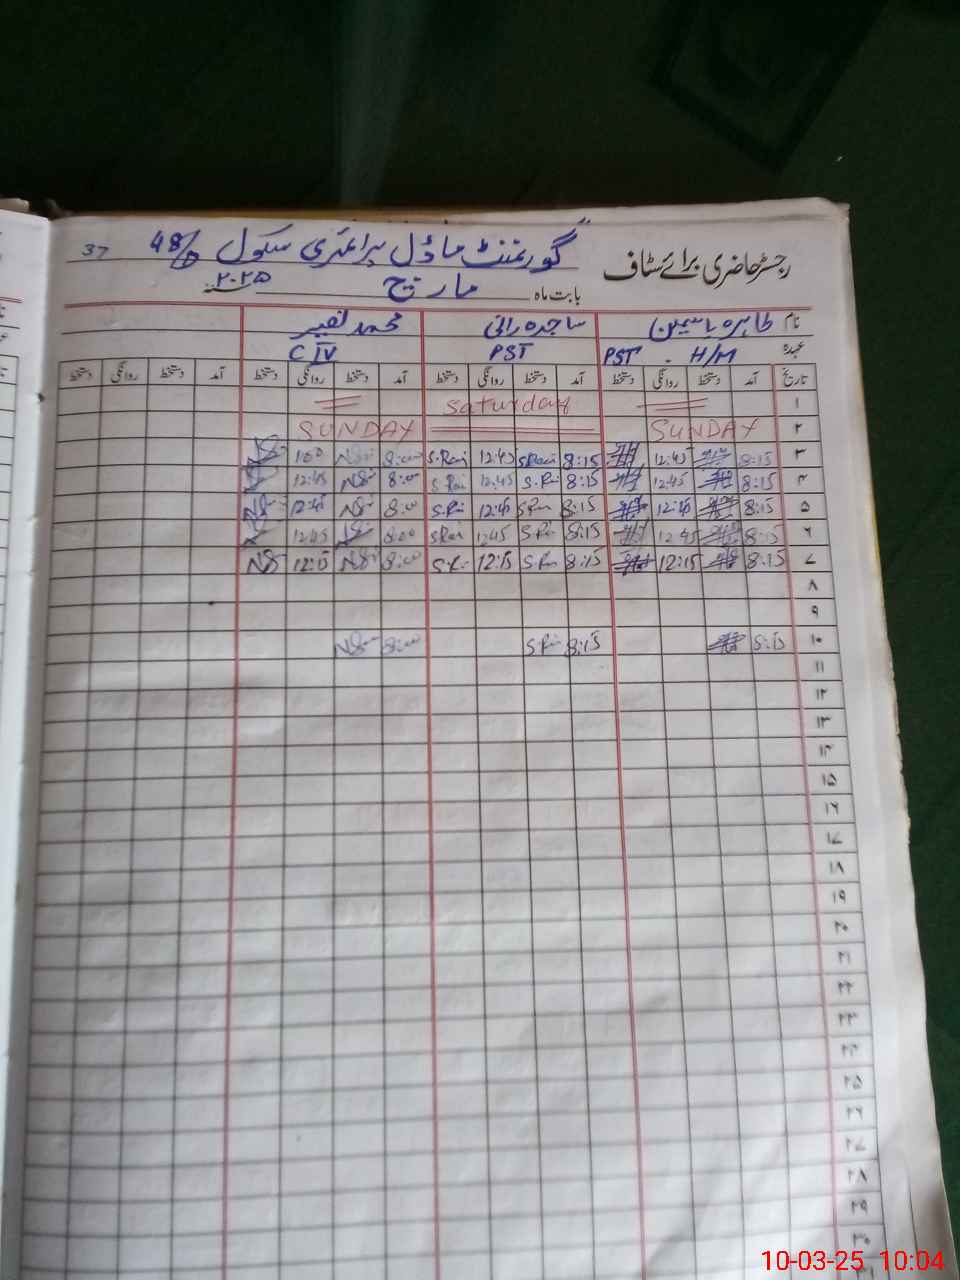 رجسٹر حاضری برائے سٹاف گورنمنٹ ماڈل پرائمری سکول 48/D 37
بابت ماہ مارچ ۲۰۲۵
نام طاہرہ یاسمین ساجدہ رانی محمد نصیر
عہدہ PST . H/M PST C IV
تاریخ آمد دستخط روانگی دستخط آمد دستخط روانگی دستخط آمد دستخط روانگی دستخط آمد دستخط روانگی دستخط
۱ Saturday
۲ SUNDAY SUNDAY
۳ 8:15 12:45 8:15 S.Rani 12:45 S.Rani 8:00 1:00
۴ 8:15 12:45 8:15 S.Rani 12:45 S.Rani 8:00 12:45
۵ 8:15 12:45 8:15 S.Rani 12:45 S.Rani 8:00 12:45
۶ 8:15 12:45 8:15 S.Rani 12:45 S.Rani 8:00 12:45
۷ 8:15 12:15 8:15 S.Rani 12:15 S.Rani 8:00 12:15
۸
۹
۱۰ 8:15 8:15 S.Rani 8:00
۱۱
۱۲
۱۳
۱۴
۱۵
۱۶
۱۷
۱۸
۱۹
۲۰
۲۱
۲۲
۲۳
۲۴
۲۵
۲۶
۲۷
۲۸
۲۹
۳۰
۳۱
10-03-25 10:04